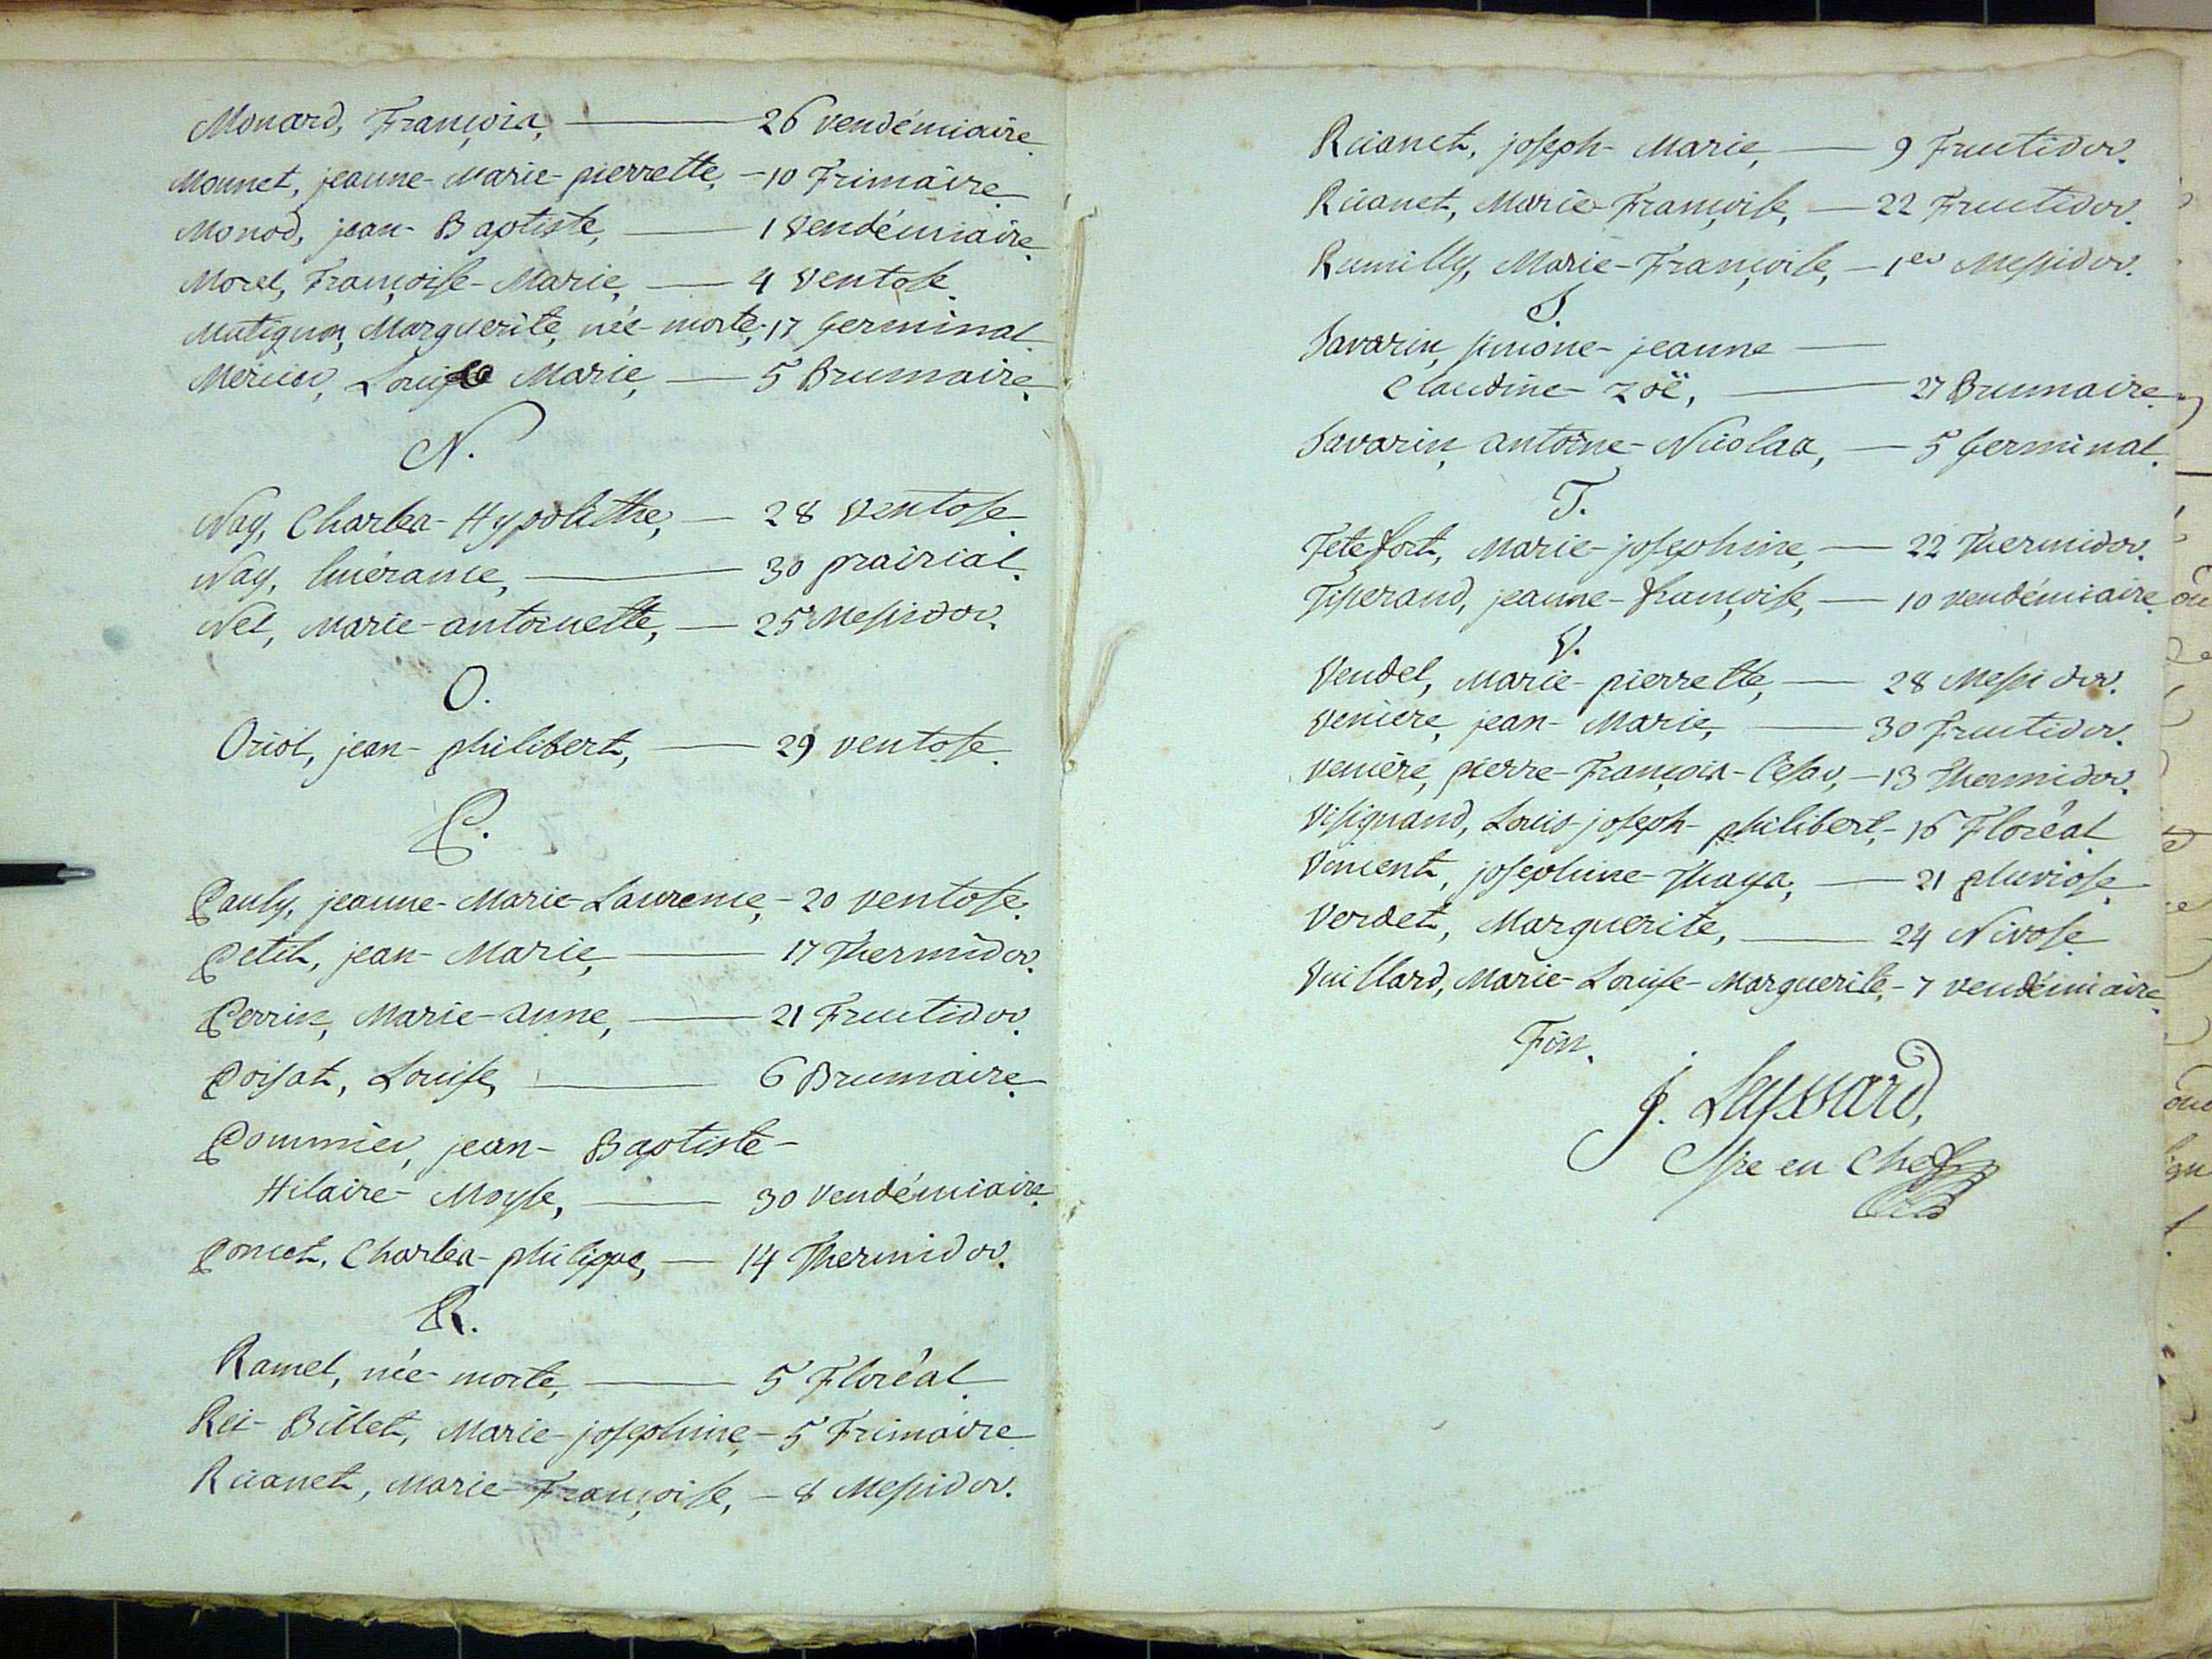 Monard, François, — 26 vendémiaire.
Monnet, jeanne-Marie-pierrette, — 10 Frimaire.
Monod, jean-Baptiste, — 1 Vendémiaire.
Morel, Françoise-Marie, — 4 Ventose.
Matignon, Marguerite, née-morte, 17 Germinal.
Mercier, Louise Marie, — 5 Brumaire.
N.
Nay, Charles-Hypolithe, — 28 Ventose.
Nay, — 30 prairial.
Nel, Marie-antoinette, — 25 Messidor.
O.
Oriol, jean-philibert, — 29 ventose.
P.
Pauly, jeanne-Marie-Laurence, — 20 ventose.
Petit, jean-Marie, — 17 Thermidor.
Perrin, Marie-anne, — 21 Fructidor.
Poisat, Louise, — 6 Brumaire.
Pommier, jean-Baptiste-
Hilaire-Moyse, — 30 Vendémiaire.
Poncet, Charles-philippe, — 14 Thermidor.
R.
Ramel, née-morte, — 5 Floréal.
Rei-Billet, Marie-josephine, — 5 Frimaire.
Ricanet, Marie-Françoise, — 8 Messidor.
Ricanet, joseph-Marie, — 9 Fructidor.
Ricanet, Marie-Françoise, — 22 Fructidor.
Rumilly, Marie-Françoise, — 1er Messidor.
S.
Savarin, simone-jeanne —
Claudine-zoë, — 27 Brumaire.
Savarin, antoine-Nicolas, — 5 Germinal.
T.
Tetefort, Marie-josephine, — 22 Thermidor.
Tisserand, jeanne-françoise, — 10 vendémiaire.
V.
Vendel, Marie-pierrette, — 28 Messidor.
Veniere, jean-Marie, — 30 fructidor.
veniere, pierre-François-César, — 13 Thermidor.
Visignand, Louis-joseph-philibert, — 16 Floréal.
Vincent, josephine-Thaya, — 21 pluviose.
Verdet, Marguerite, — 24 Nivose.
Vuillard, Marie-Louise-Marguerite, — 7 vendémiaire.
Fin.
J. Leyssard,
Sre en Chef